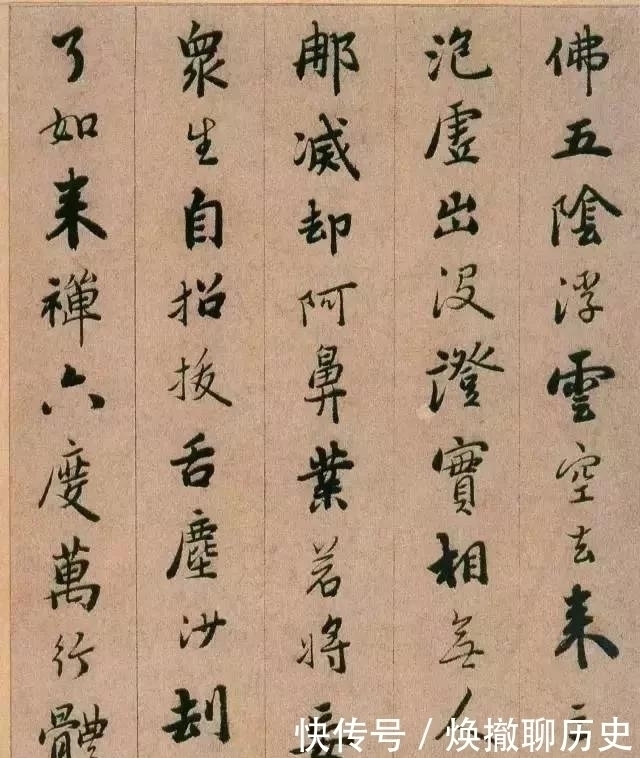 佛五陰浮雲空去来
泡虛出没證實相無人
那滅却阿鼻業若將
衆生自招拔舌塵沙劫
了如来禪六度萬行體
快传号 / 焕撤聊历史